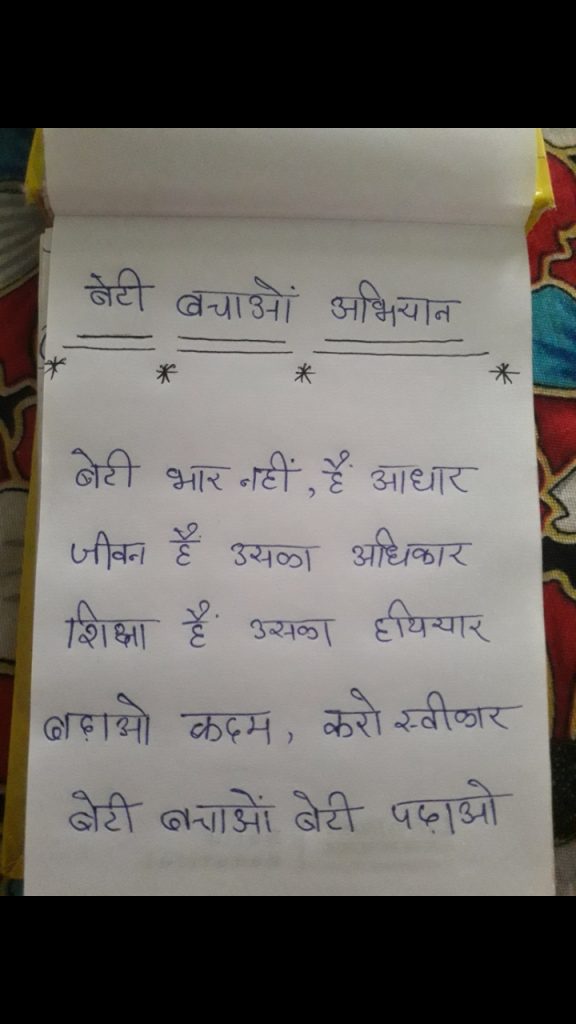 बेटी बचाओं अभियान
बेटी भार नहीं, हैं आधार
जीवन हैं उसका अधिकार
शिक्षा हैं उसका हथियार
बढ़ाओ कदम, करो स्वीकार
बेटी बचाओं बेटी पढ़ाओ